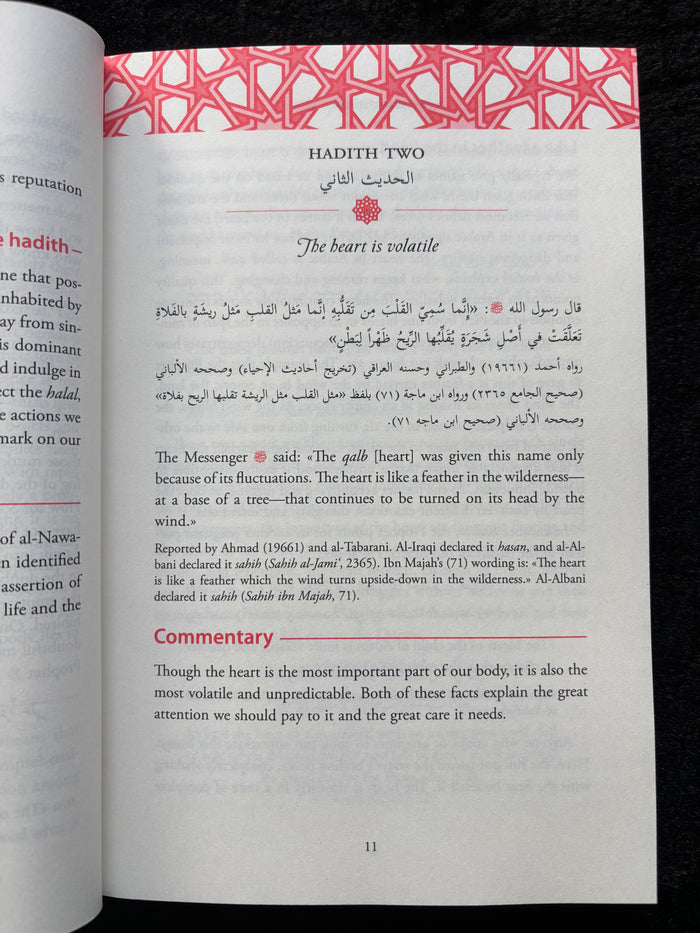 s reputation
e hadith –
ne that pos-
nhabited by
ay from sin-
is dominant
d indulge in
ect the halal,
e actions we
mark on our
of al-Nawa-
n identified
assertion of
life and the
HADITH TWO
الحديث الثاني
The heart is volatile
قال رسول الله ﷺ: «إِنَّما سُمِيّ القَلْبَ مِن تَقَلُّبِهِ إنَّما مَثلُ القلبِ مَثلُ ريشَةٍ بالفَلاةِ
تَعلَّقَتْ في أَصْلِ شَجَرَةٍ يُقَلِّبُها الرِّيحُ ظَهْراً لِبَطْنٍ»
رواه أحمد (١٩٦٦١) والطبراني وحسنه العراقي (تخريج أحاديث الإحياء) وصححه الألباني
(صحيح الجامع ٢٣٦٥) ورواه ابن ماجة (٧١) بلفظ «مثل القلب مثل الريشة تقلبها الريح بفلاة»
وصححه الألباني (صحيح ابن ماجه ٧١).
The Messenger ﷺ said: «The qalb [heart] was given this name only
because of its fluctuations. The heart is like a feather in the wilderness—
at a base of a tree—that continues to be turned on its head by the
wind.»
Reported by Ahmad (19661) and al-Tabarani. Al-Iraqi declared it hasan, and al-Al-
bani declared it sahih (Sahih al-Jami‘, 2365). Ibn Majah’s (71) wording is: «The heart
is like a feather which the wind turns upside-down in the wilderness.» Al-Albani
declared it sahih (Sahih ibn Majah, 71).
Commentary
Though the heart is the most important part of our body, it is also the
most volatile and unpredictable. Both of these facts explain the great
attention we should pay to it and the great care it needs.
11